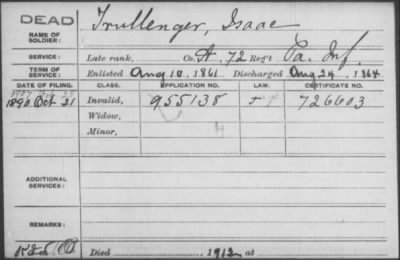 DEAD
NAME OF SOLDIER: Trullenger, Isaac
SERVICE: Late rank, Co. A, 72 Reg't Pa. Inf.
TERM OF SERVICE: Enlisted Aug 10, 1861. Discharged Aug 24, 1864
DATE OF FILING. CLASS. APPLICATION NO. LAW. CERTIFICATE NO.
1890 Oct 21 Invalid, 955138 726603
Widow,
Minor,
ADDITIONAL SERVICES:
REMARKS:
Died 1912, at